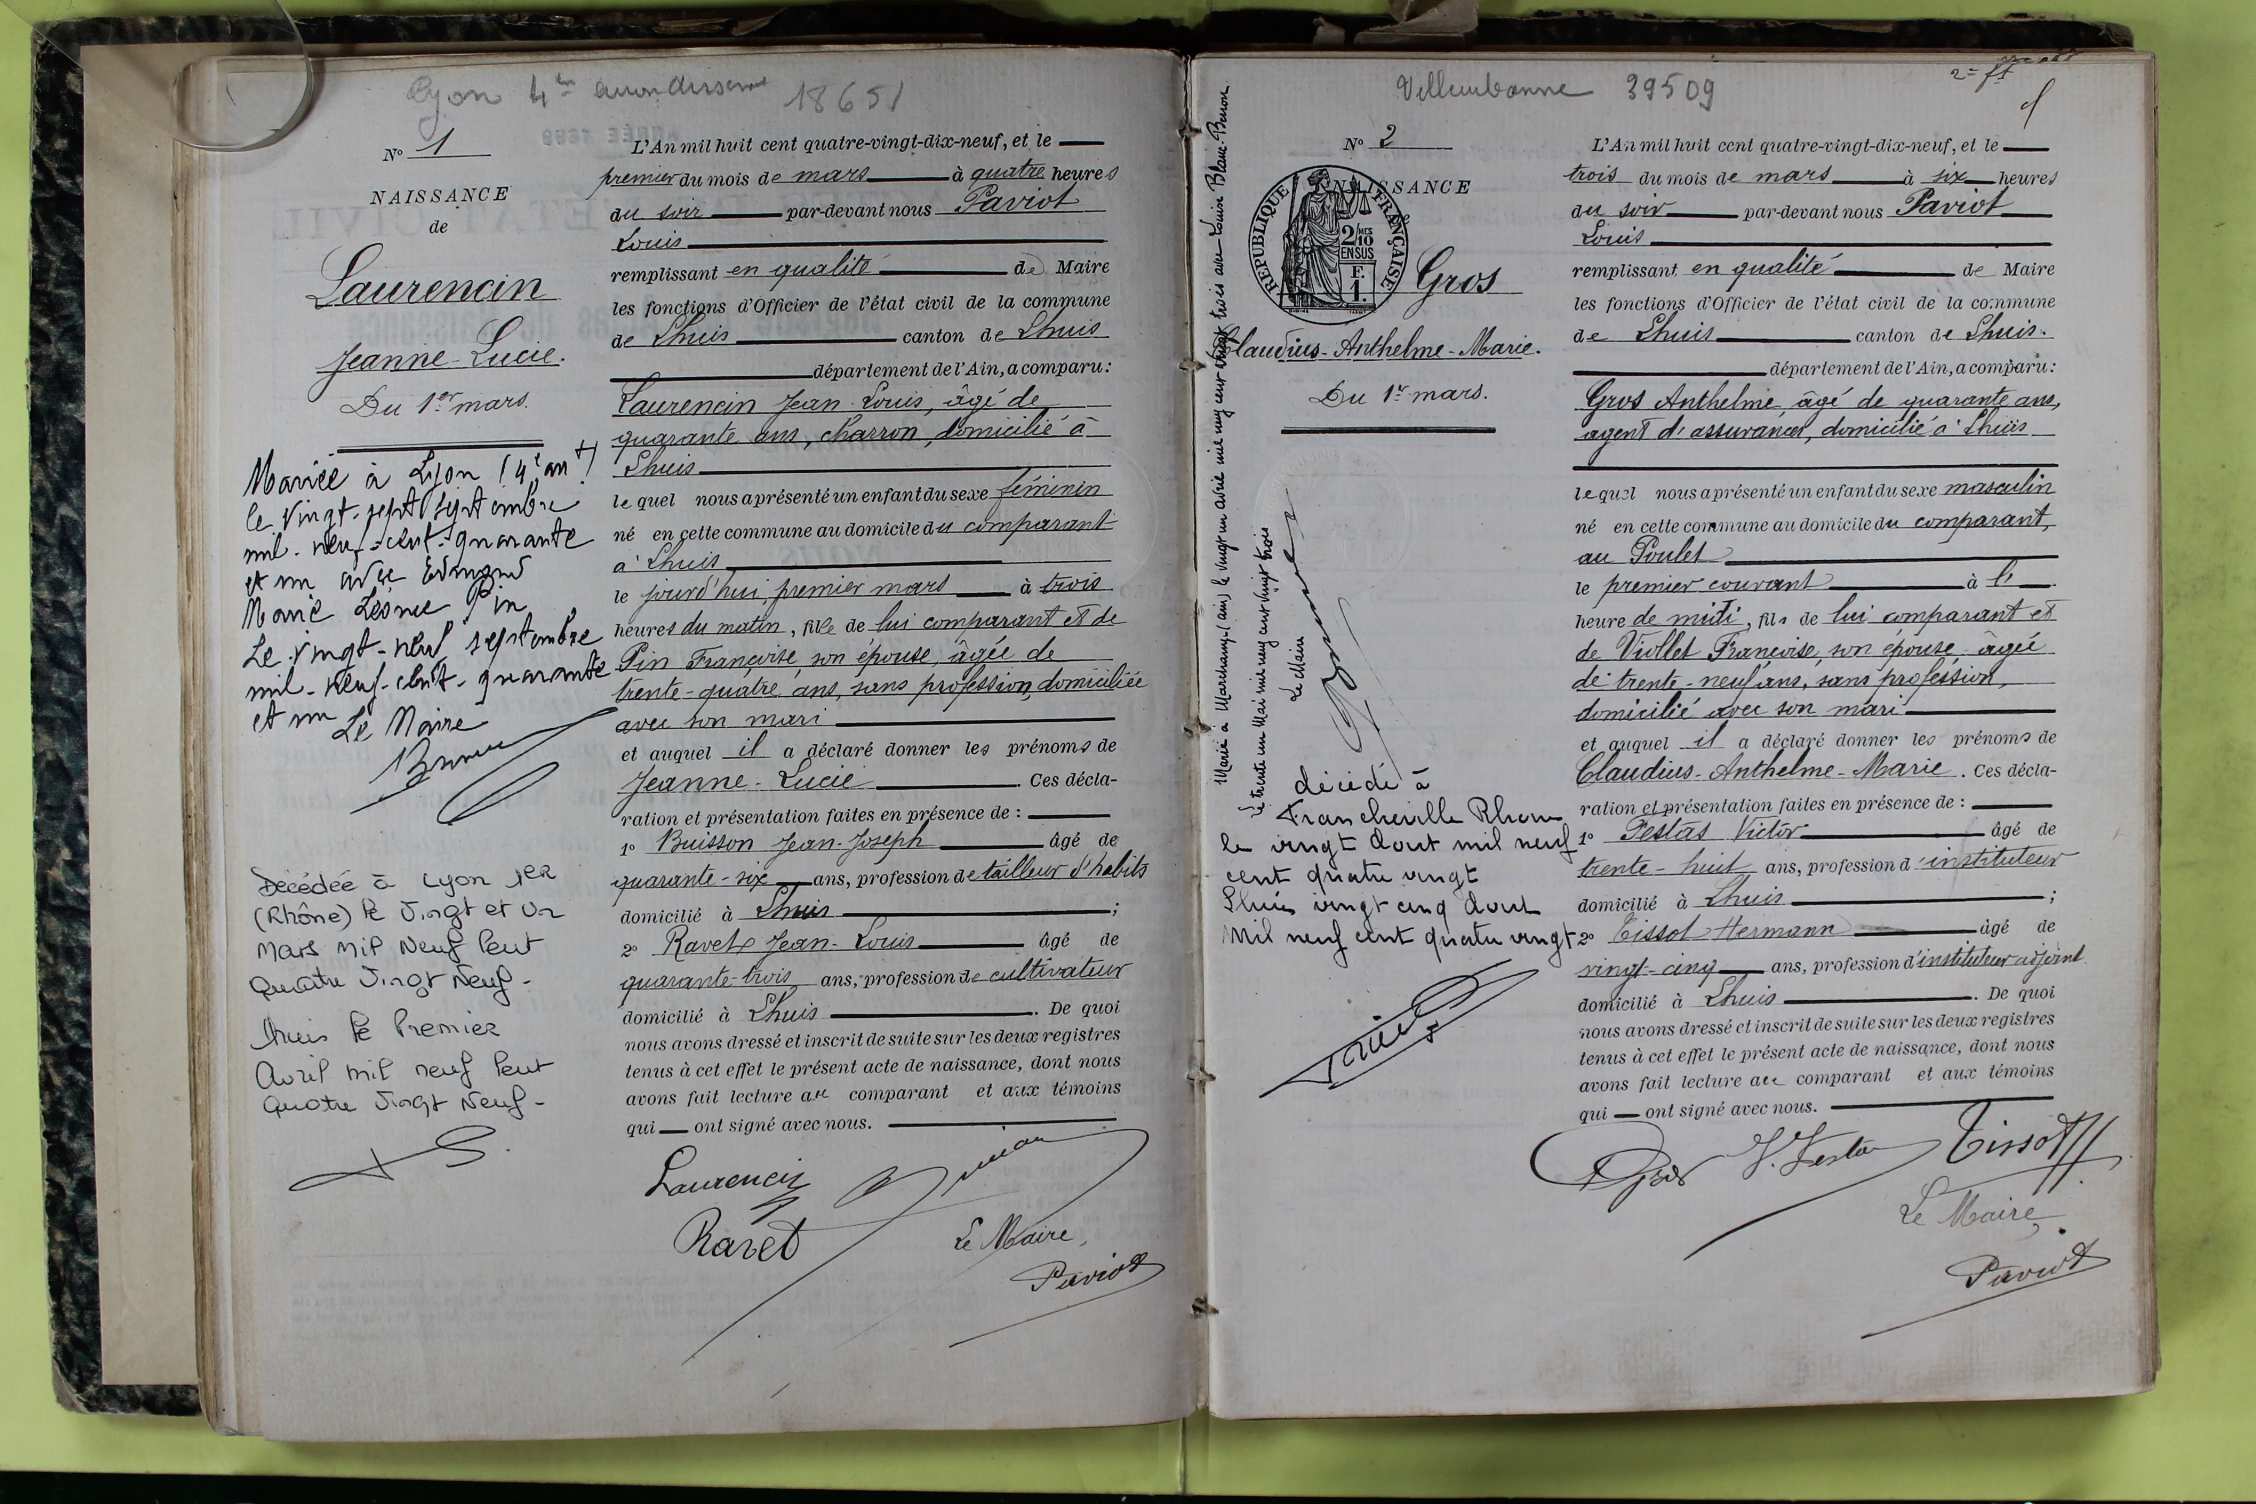 Lyon 4me arrondissement 18651
N° 1
NAISSANCE
de
Laurencin
Jeanne-Lucie.
Du 1er mars.
Mariée à Lyon (4e arrt)
le vingt-sept septembre
mil-neuf-cent-quarante
et un avec Edmond
Marie Léonce Pin
Le vingt-neuf septembre
mil-neuf-cent-quarante
et un Le Maire
Décédée à Lyon 1er
(Rhône) le vingt et un
mars mil neuf cent
quatre vingt neuf-
Lhuis le premier
avril mil neuf cent
quatre vingt neuf-
L'An mil huit cent quatre-vingt-dix-neuf, et le
premier du mois de mars à quatre heures
du soir par-devant nous Paviot
Louis
remplissant en qualité de Maire
les fonctions d'Officier de l'état civil de la commune
de Lhuis canton de Lhuis
département de l'Ain, a comparu:
Laurencin Jean-Louis, âgé de
quarante ans, charron, domicilié à
Lhuis
lequel nous a présenté un enfant du sexe féminin
né en cette commune au domicile du comparant
à Lhuis
le jourd'hui, premier mars à trois
heures du matin, fille de lui comparant et de
Pin Françoise, son épouse, âgée de
trente-quatre ans, sans profession, domiciliée
avec son mari
et auquel il a déclaré donner les prénoms de
Jeanne-Lucie. Ces décla-
ration et présentation faites en présence de :
1° Buisson Jean-Joseph âgé de
quarante-six ans, profession de tailleur d'habits
domicilié à Lhuis ;
2° Ravet Jean-Louis âgé de
quarante-trois ans, profession de cultivateur
domicilié à Lhuis. De quoi
nous avons dressé et inscrit de suite sur les deux registres
tenus à cet effet le présent acte de naissance, dont nous
avons fait lecture au comparant et aux témoins
qui ont signé avec nous.
Laurencin
Ravet
Le Maire,
Paviot
Villeurbanne 39509
N° 2
NAISSANCE
RÉPUBLIQUE FRANÇAISE
2/10 MES
EN SUS
F.
1.
Gros
Claudius-Anthelme-Marie.
Du 1er mars.
Marié à Marchamp (Ain) le vingt un avril mil neuf cent vingt trois avec Louise Blanc-Benon
Le trente un Mai mil neuf cent vingt trois
Le Maire
décédé à
Francheville Rhône
le vingt Aout mil neuf
cent quatre vingt
Lhuis vingt cinq Aout
Mil neuf cent quatre vingt
L'An mil huit cent quatre-vingt-dix-neuf, et le
trois du mois de mars à six heures
du soir par-devant nous Paviot
Louis
remplissant en qualité de Maire
les fonctions d'Officier de l'état civil de la commune
de Lhuis canton de Lhuis.
département de l'Ain, a comparu:
Gros Anthelme, âgé de quarante ans,
agent d'assurances, domicilié à Lhuis
lequel nous a présenté un enfant du sexe masculin
né en cette commune au domicile du comparant,
au Poulet
le premier courant à l'
heure de midi, fils de lui comparant et
de Viollet Françoise, son épouse âgée
de trente-neuf ans, sans profession,
domicilié avec son mari
et auquel il a déclaré donner les prénoms de
Claudius-Anthelme-Marie. Ces décla-
ration et présentation faites en présence de :
1° Testas Victor âgé de
trente-huit ans, profession d'instituteur
domicilié à Lhuis ;
2° Tissot Hermann âgé de
vingt-cinq ans, profession d'instituteur adjoint
domicilié à Lhuis. De quoi
nous avons dressé et inscrit de suite sur les deux registres
tenus à cet effet le présent acte de naissance, dont nous
avons fait lecture au comparant et aux témoins
qui ont signé avec nous.
Gros V. Testas Tissot
Le Maire,
Paviot